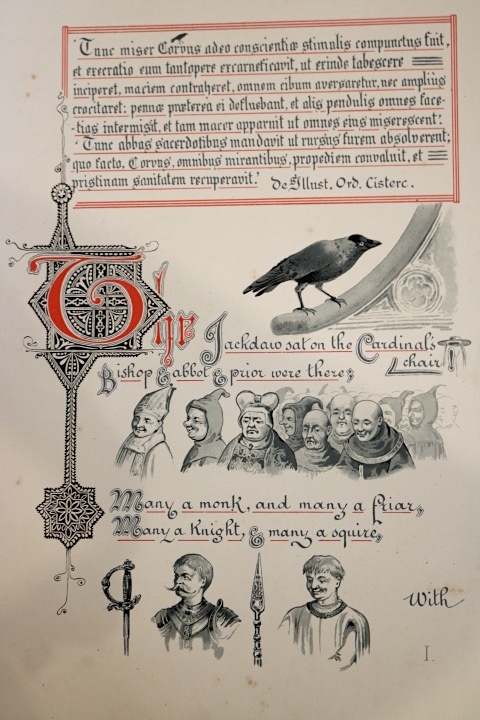 'Tunc miser Corvus adeo conscientiæ stimulis compunctus fuit,
et execratio eum tantopere excarneficavit, ut exinde tabescere
inciperet, maciem contraheret, omnem cibum aversaretur, nec amplius
crocitaret: pennæ præterea ei defluebant, et alis pendulis omnes face-
-tias intermisit, et tam macer apparuit ut omnes ejus miserescent.'
'Tunc abbas sacerdotibus mandavit ut rursus furem absolverent;
quo facto, Corvus, omnibus mirantibus, propediem convaluit, et
pristinam sanitatem recuperavit.' De Illust. Ord. Cisterc.
The Jackdaw sat on the Cardinal's
chair!
Bishop & abbot & prior were there;
Many a monk, and many a friar,
Many a Knight, & many a squire,
With
I.